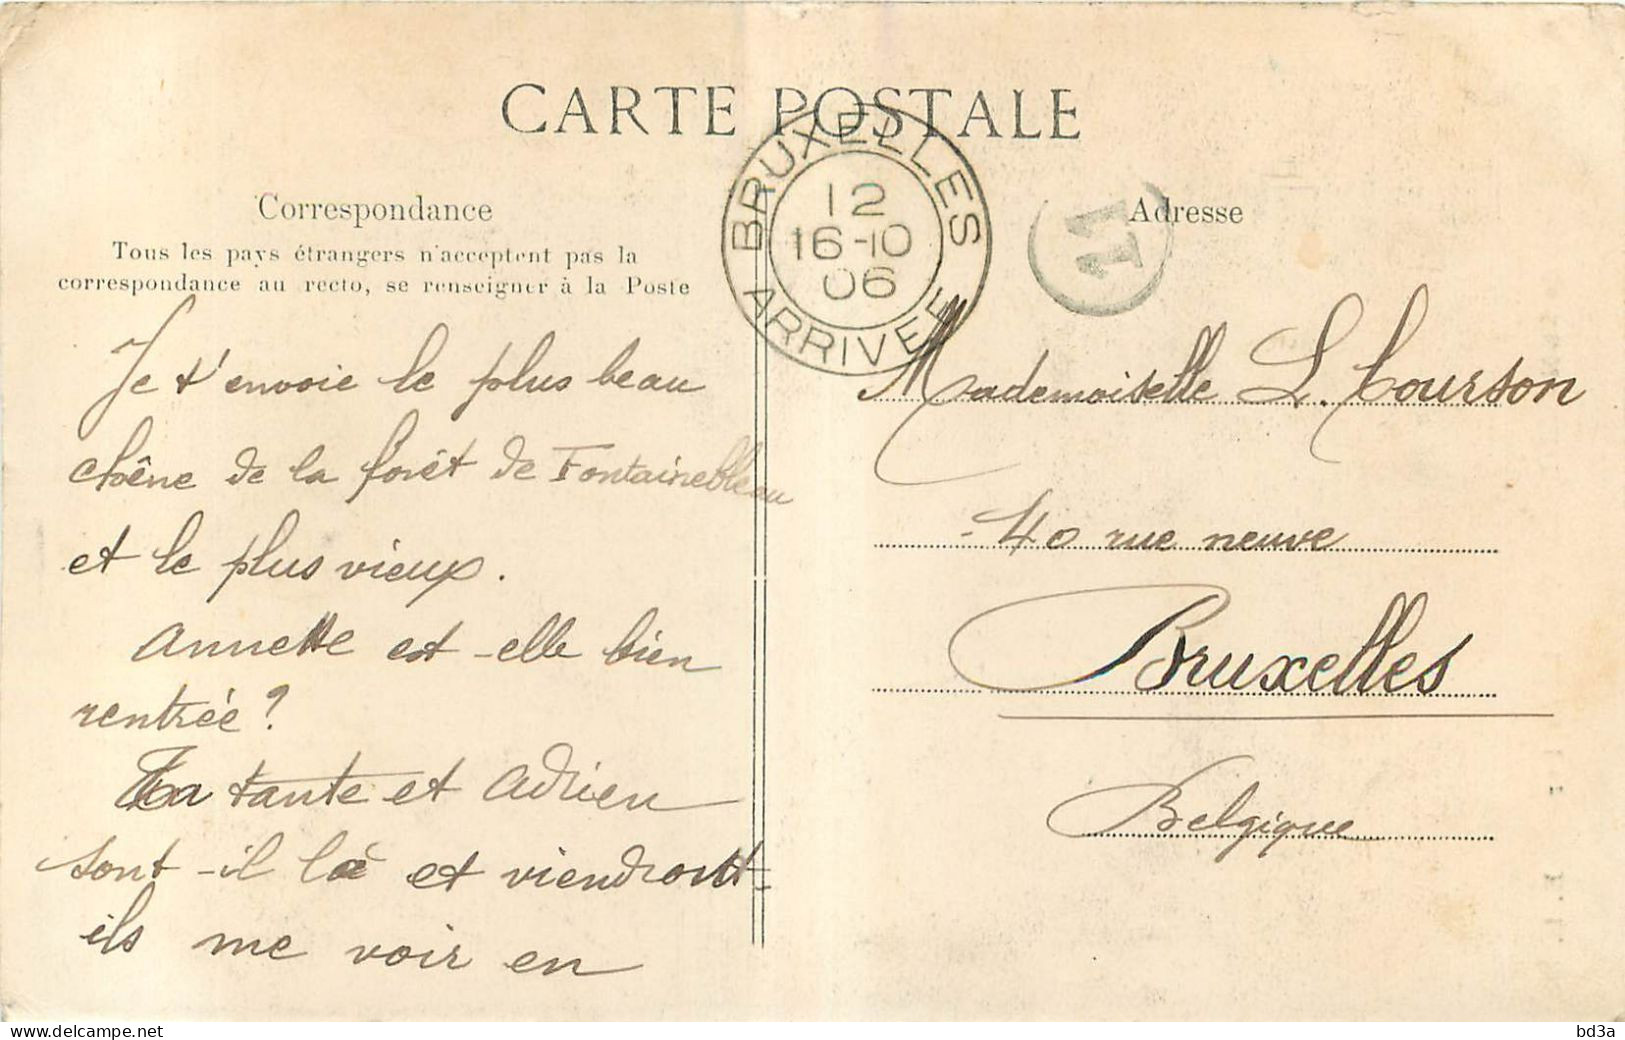 CARTE POSTALE
Correspondance
Tous les pays étrangers n'acceptent pas la
correspondance au recto, se renseigner à la Poste
Je t'envoie le plus beau
chêne de la forêt de Fontainebleau
et le plus vieux.
Annette est-elle bien
rentrée ?
Ta tante et Adrien
sont-il là et viendront-
ils me voir en
BRUXELLES
12
16-10
06
ARRIVEE
11
Adresse
Mademoiselle L. Courson
40 rue neuve
Bruxelles
Belgique
www.delcampe.net
bd3a